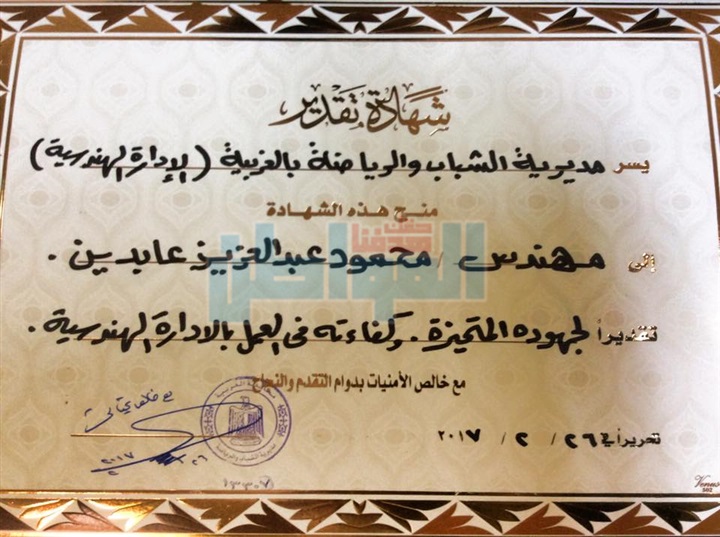 شهادة تقدير
يسر مديرية الشباب والرياضة بالغربية (الإدارة الهندسية)
منح هذه الشهادة
إلى مهندس / محمود عبدالعزيز عابدين .
تقديراً لجهوده المتميزة . وكفاءته فى العمل بالادارة الهندسية .
مع خالص الأمنيات بدوام التقدم والنجاح
تحريراً في ٢٦ / ٢ / ٢٠١٧
المواطن
Venus